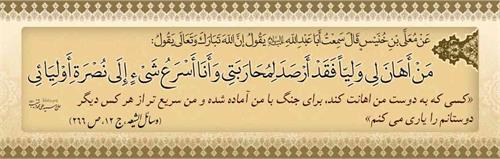 عَنْ مُعَلَّى بْنِ خُنَيْسٍ قَالَ سَمِعْتُ أَبَا عَبْدِ اللَّهِ يَقُولُ إِنَّ اللَّهَ تَبَارَكَ وَتَعَالَى يَقُولُ:
مَنْ أَهَانَ لِی وَلِیاً فَقَدْ أَرْصَدَ لِمُحَارَبَتِی وَأَنَا أَسْرَعُ شَیْءٍ إِلَى نُصْرَةِ أَوْلِیَائِی
«کسی که به دوست من اهانت کند، برای جنگ با من آماده شده و من سریع تر از هر کس دیگر
دوستانم را یاری می کنم»
(وسائل الشیعه، ج ۱۲، ص ۲۶۶)